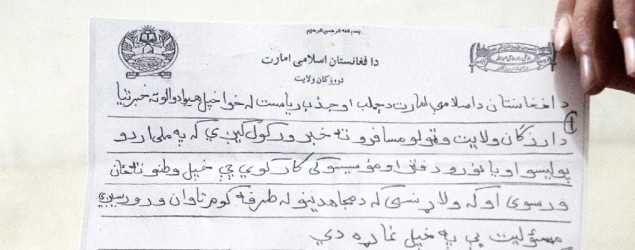 بسم الله الرحمن الرحیم
د افغانستان اسلامی امارت
دروزګان ولایت
د افغانستان د اسلامي امارت د جلب او جذب ریاست له خوا خپل هیوادوالو ته خبرتیا
د ارزګان ولایت و ټولو مسافرو ته خبر ورکول کیږي که په ملي اردو
پولیسو او یا نورو دفتر او مؤسیسو کي کار کلوي چي خپل وطنو ته ځان
ورسوي او که ولاړ نسي که د مجاهدینو له طرفه کوم تاوان ورورسیږي
مسؤلیت یې په خپل غاړه دي